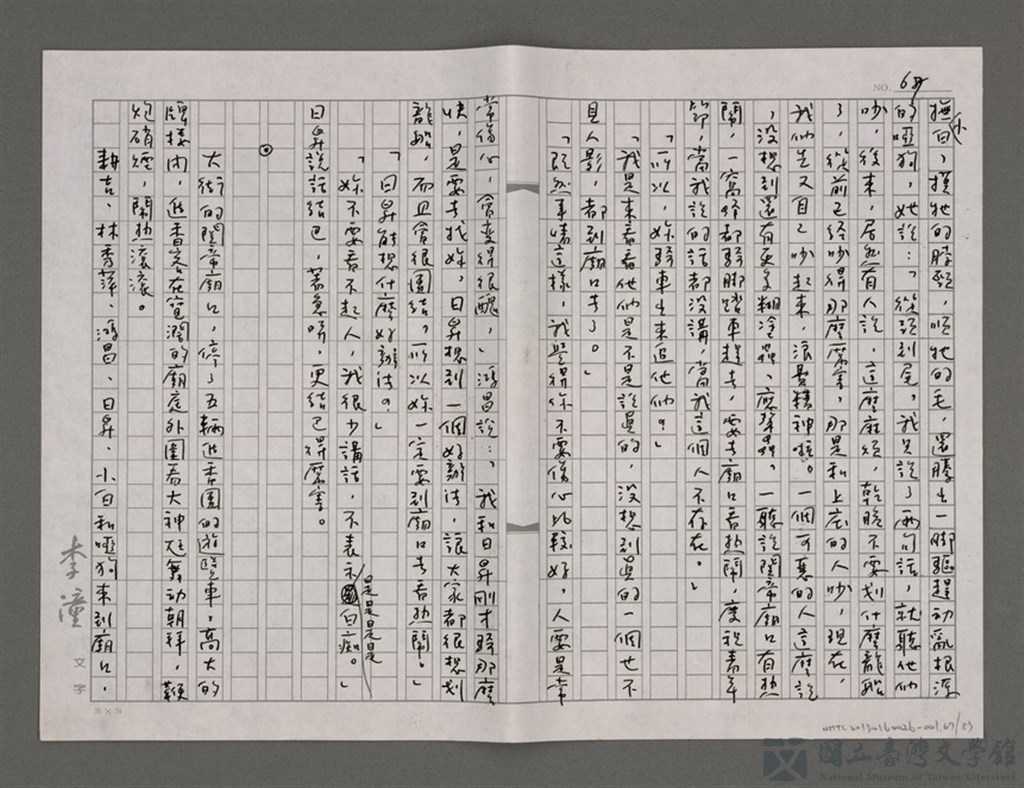 NO. 68
撫白,摸牠的脖頸,順牠的毛,還騰出一腳驅趕动亂很深
小
的啞狗,她說:「從頭到尾,我只說了兩句話,就聽他們
吵,後來,居然有人說,這麼麻煩,乾脆不要划什麼龍船
了,從前已經吵得那麼厲害,那是和上庄的人吵,現在,
我們先又自己吵起來,浪費精神啦。一個可惡的人這麼說
,沒想到還有更多糊塗蟲、應聲蟲。一聽說關帝廟口有熱
鬧,一窩蜂都騎腳踏車趕去,要去廟口看热鬧,慶祝青年
節,當我說的話都沒講,當我這個人不存在。」
「所以,妳騎車出來追他們?」
「我是來看看他們是不是說真的,沒想到真的一個也不
見人影,都到廟口去了。」
「既然事情這樣,我覺得你不要傷心比較好,人要是常
常傷心,會變得很醜,」鴻昌說:「我和日昇剛才騎那麼
快,是要去找妳,日昇想到一個好辦法,讓大家都很想划
龍船,而且會很團結,所以妳一定要到廟口去看热鬧。」
「日昇能想什麼好辦法?」
「妳不要看不起人,我很少講話,不表示
是是是是
白痴。」
日昇說話結巴,著急時,更結巴得厲害。
大街的關帝廟口,停了五輛進香團的遊覽車,高大的
牌樓內,進香客在寬濶的廟庭外圍看大神尪舞动朝拜,鞭
炮硝煙,鬧热滾滾。
耕吉、林秀萍、鴻昌、日昇、小白和啞狗來到廟口,
李潼
文字
25 × 24
NMTL20130160026-001.69/83
國立臺灣文學館
National Museum of Taiwan Literature